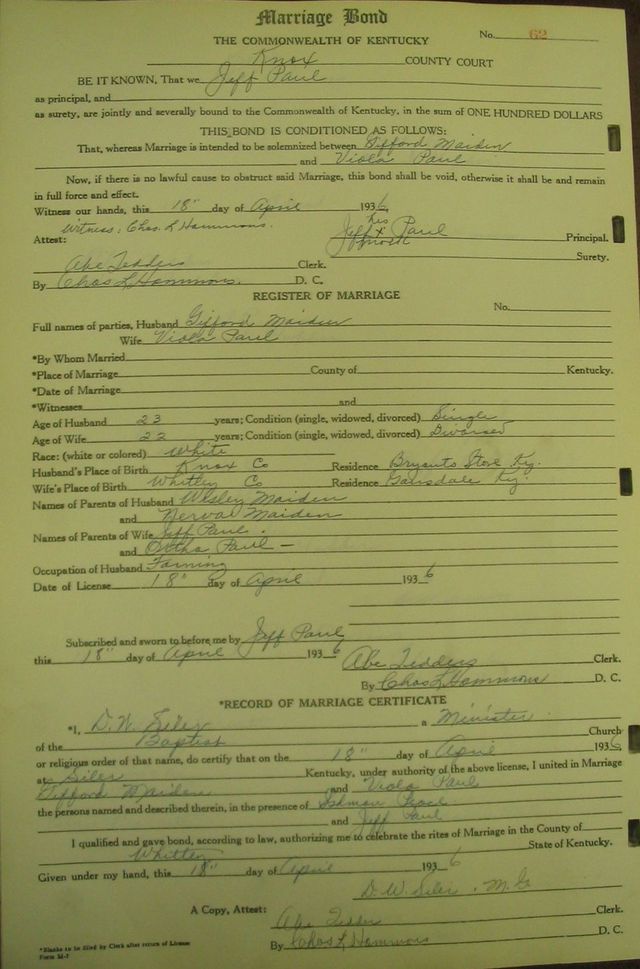 Marriage Bond
THE COMMONWEALTH OF KENTUCKY No. 62
Knox COUNTY COURT
BE IT KNOWN, That we Jeff Paul
as principal, and
as surety, are jointly and severally bound to the Commonwealth of Kentucky, in the sum of ONE HUNDRED DOLLARS
THIS BOND IS CONDITIONED AS FOLLOWS:
That, whereas Marriage is intended to be solemnized between Gifford Maiden
and Viola Paul
Now, if there is no lawful cause to obstruct said Marriage, this bond shall be void, otherwise it shall be and remain
in full force and effect.
Witness our hands, this 18" day of April 1936
Witness: Chas. L Hammons. his
Attest: Jeff x Paul Principal.
mark
Surety.
Abe Tedders Clerk.
By Chas L Hammons. D. C.
REGISTER OF MARRIAGE
No.
Full names of parties, Husband Gifford Maiden
Wife Viola Paul
*By Whom Married
*Place of Marriage County of Kentucky.
*Date of Marriage
*Witnesses and
Age of Husband 23 years; Condition (single, widowed, divorced) Single
Age of Wife 22 years; Condition (single, widowed, divorced) Divorced
Race: (white or colored) White
Husband's Place of Birth Knox Co Residence Bryants Store Ky.
Wife's Place of Birth Whitley C Residence Gausdale Ky.
Names of Parents of Husband Wesley Maiden
and Nerva Maiden
Names of Parents of Wife Jeff Paul.
and Ortha Paul —
Occupation of Husband Farming
Date of License 18" day of April 1936
Subscribed and sworn to before me by Jeff Paul
this 18" day of April 1936 Abe Tedders Clerk.
By Chas L Hammons D. C.
*RECORD OF MARRIAGE CERTIFICATE
*I, D. W. Siler a Minister
of the Baptist Church
or religious order of that name, do certify that on the 18" day of April 1936
at Siler Kentucky, under authority of the above license, I united in Marriage
Gifford Maiden and Viola Paul
the persons named and described therein, in the presence of
and Jeff Paul
I qualified and gave bond, according to law, authorizing me to celebrate the rites of Marriage in the County of
Whitley State of Kentucky.
Given under my hand, this 18" day of April 1936
D. W. Siler, M. G.
A Copy, Attest: Abe Tedder Clerk.
By Chas L Hammons D. C.
*Blanks to be filled by Clerk after return of License
Form M-7